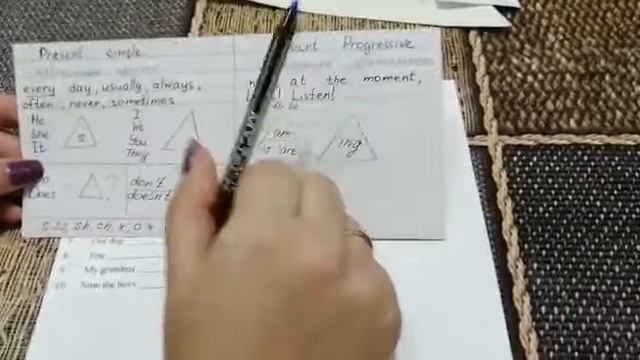 Present Simple
every day, usually, always,
often, never, sometimes
He
She
It
s
I
We
You
They
Does
?
don't
doesn't
s, ss, sh, ch, x, o
Progressive
at the moment,
Listen!
to be
are
is are
ing
8
9 My grandma
10 Now the boys